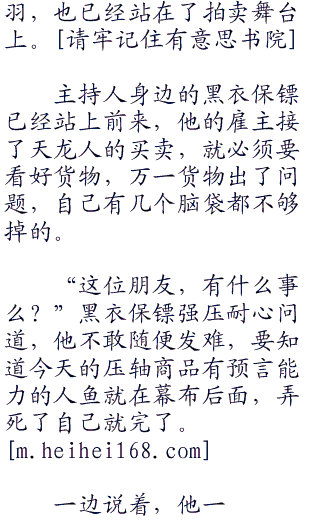 羽，也已经站在了拍卖舞台
上。[请牢记住有意思书院]
主持人身边的黑衣保镖
已经站上前来，他的雇主接
了天龙人的买卖，就必须要
看好货物，万一货物出了问
题，自己有几个脑袋都不够
掉的。
“这位朋友，有什么事
么？”黑衣保镖强压耐心问
道，他不敢随便发难，要知
道今天的压轴商品有预言能
力的人鱼就在幕布后面，弄
死了自己就完了。
[m.heihei168.com]
一边说着，他一